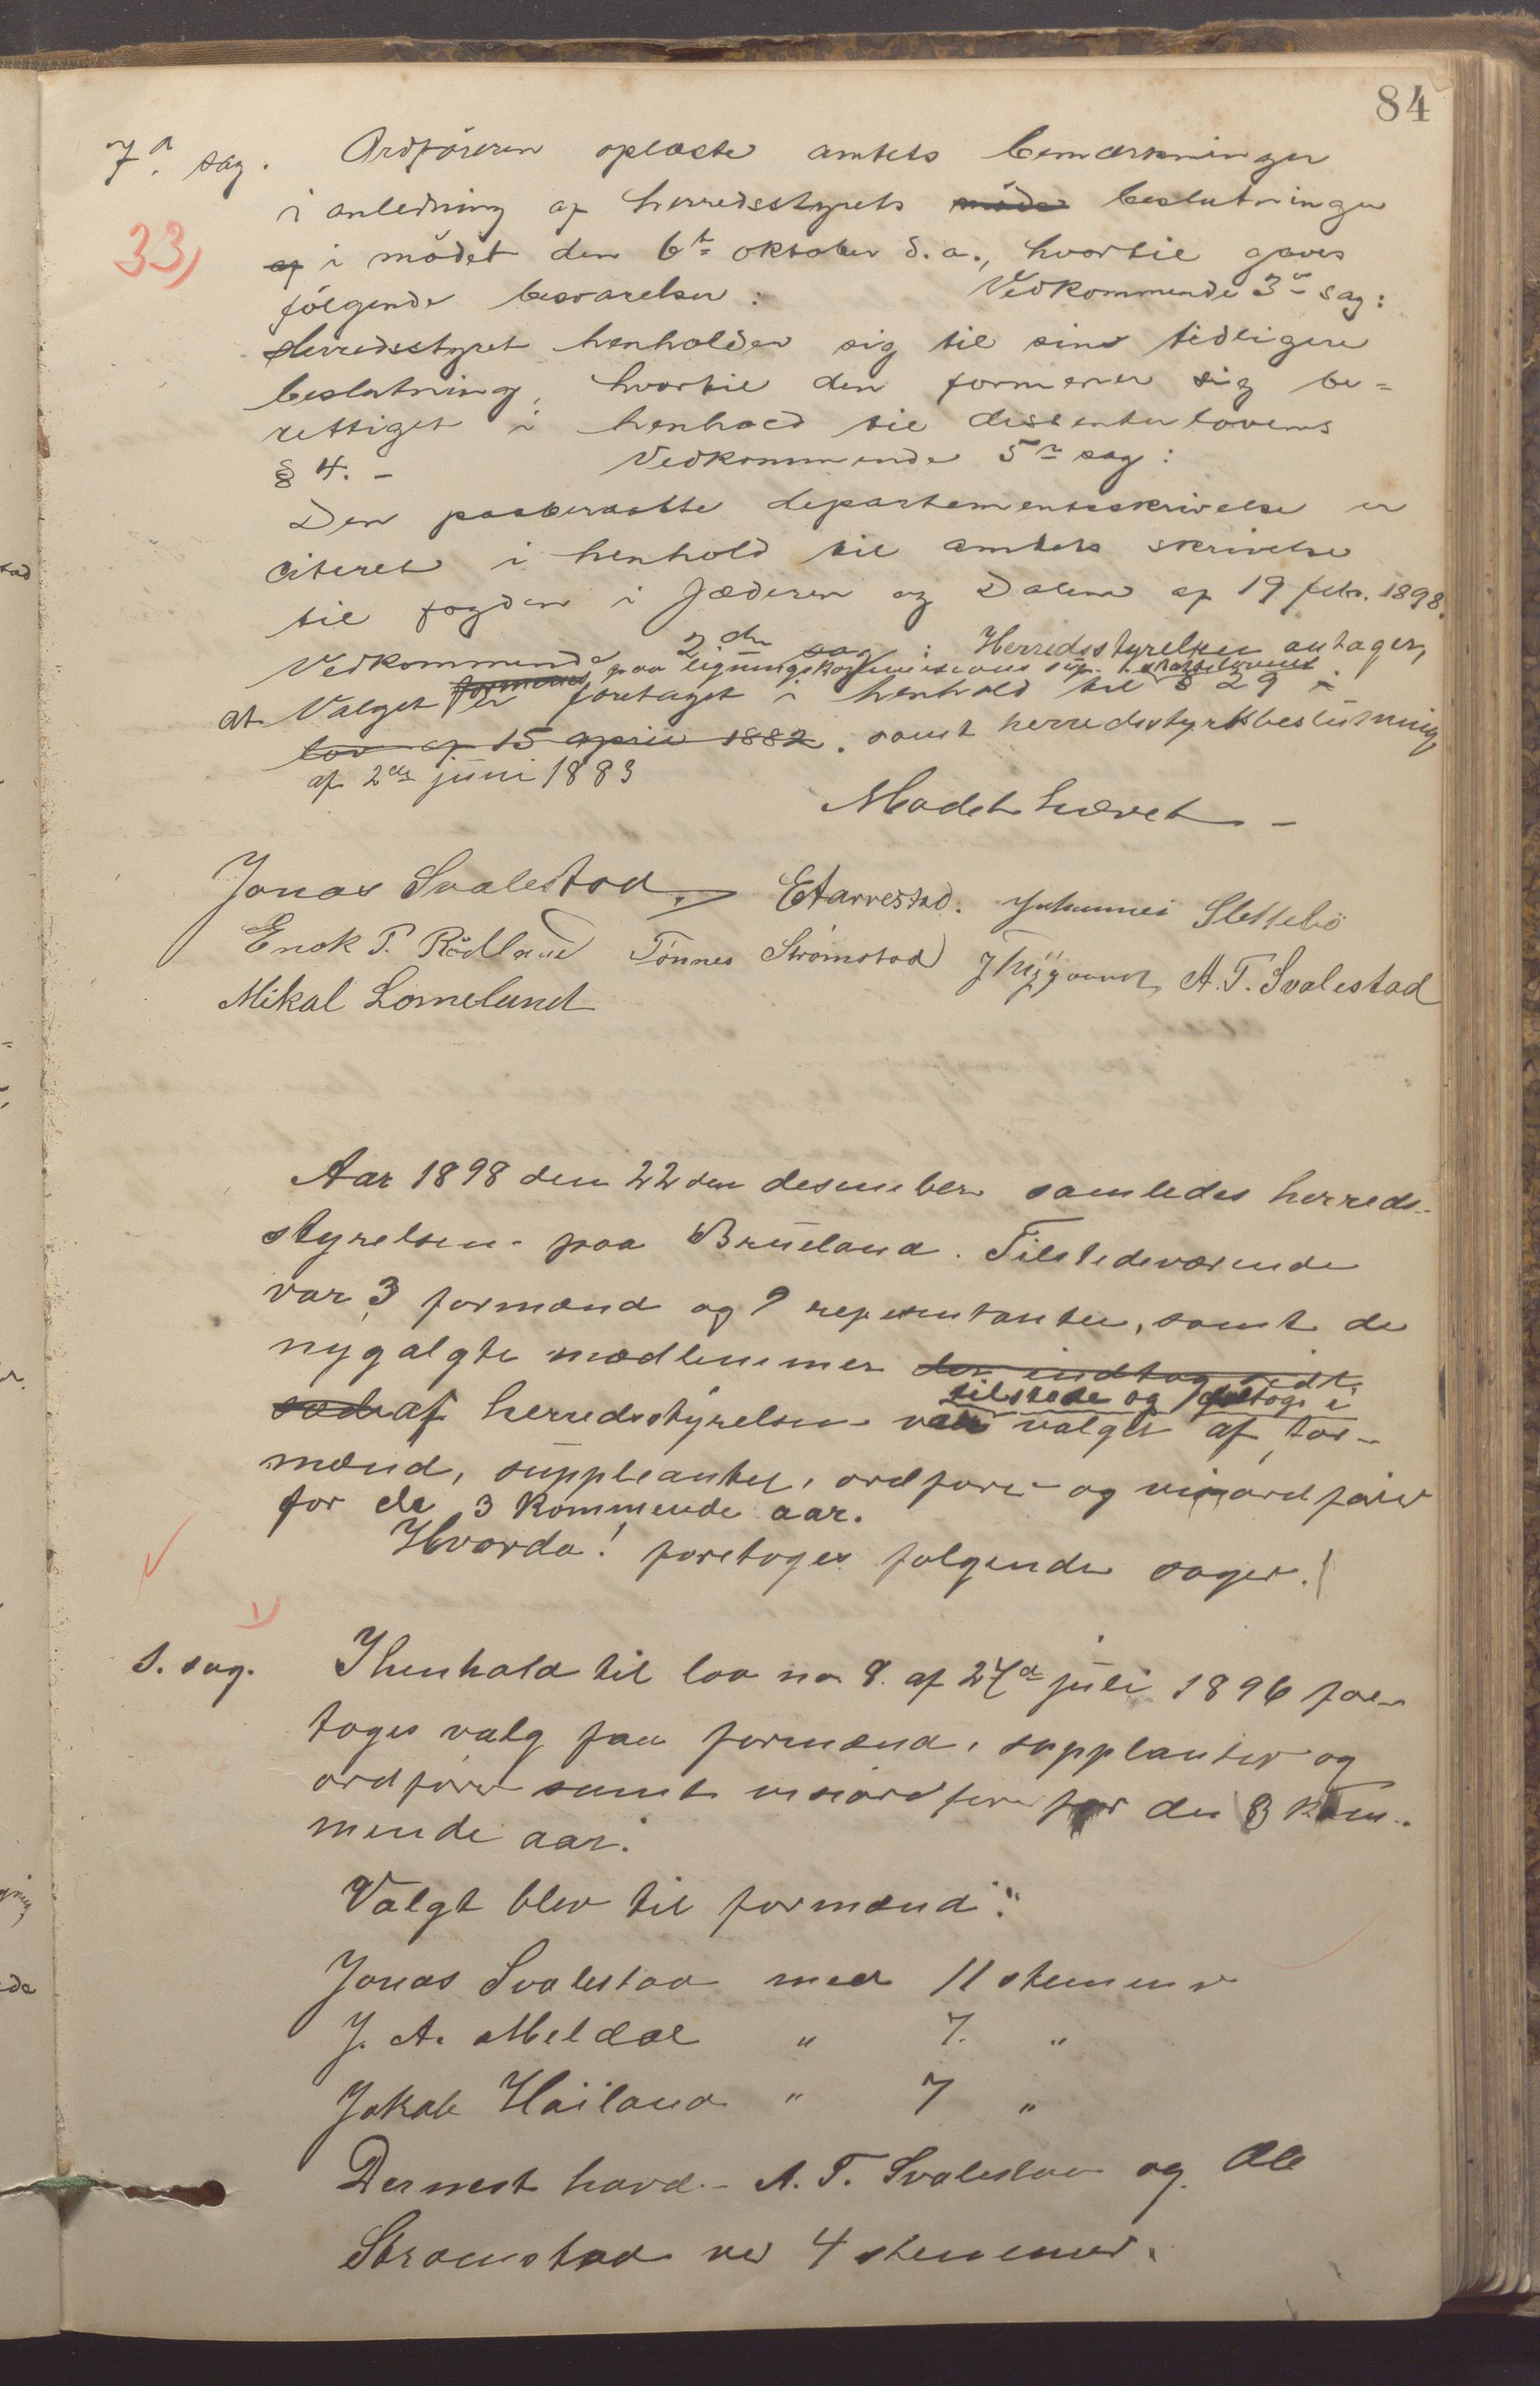 84
7de sag. Ordføreren oplæste amtets bemærkninger
i anledning af herredsstyrets møde beslutninger
33)
af i mødet den 6te oktober d.a., hvortil gaves
følgende besvarelser: Vedkommende 3die sag:
Herredsstyret henholder sig til sine tidligere
beslutning, hvortil den formener sig be=
rettiget i henhold til dissenterlovens
§ 4. – Vedkommende 5te sag:
Den paaberaabte departementsskrivelse er
citeret i henhold til amtets skrivelse
til fogden i Jæderen og Dalene af 19 febr. 1898.
Vedkommende 2den sag: Herredsstyrelsen antager,
paa ligningskommissions sup. skattelovens
at Valget formenes er foretaget i henhold til § 29 i
lov af 15 april 1882. samt herredsstyrsbeslutning
af 2den juni 1883
Mødet hævet –
Jonas Svalestad. E Aarrestad. Johannes Slettebø
Enok T. Rødland Tønnes Strømstad A. T. Svalestad
Mikal Lomelund
Aar 1898 den 22den desember samledes herreds-
styrelsen paa Brueland. Tilstedeværende
var 3 formænd og 9 representanter, samt de
nyvalgte medlemmer der indtog sidt.
tilstede og deltog i
sæde af herredsstyrelsen var valget af for-
mænd, suppleanter, ordfører og viseordfører
for de 3 kommende aar.
Hvorda! foretoges følgende sager.
1)
1. sag. I henhold til lov no 8. af 27de juli 1896 fore
toges valg paa formænd, supplanter og
ordfører samt viseordfører for de 3 kom-
mende aar.
Valgt blev til formænd:
Jonas Svalestad med 11 stemmer
J. A. Meldal " 7. "
Jakob Høiland " 7 "
Dernest havd - A. T. Svalestad og Ole
Strømstad ved 4 stemmer.